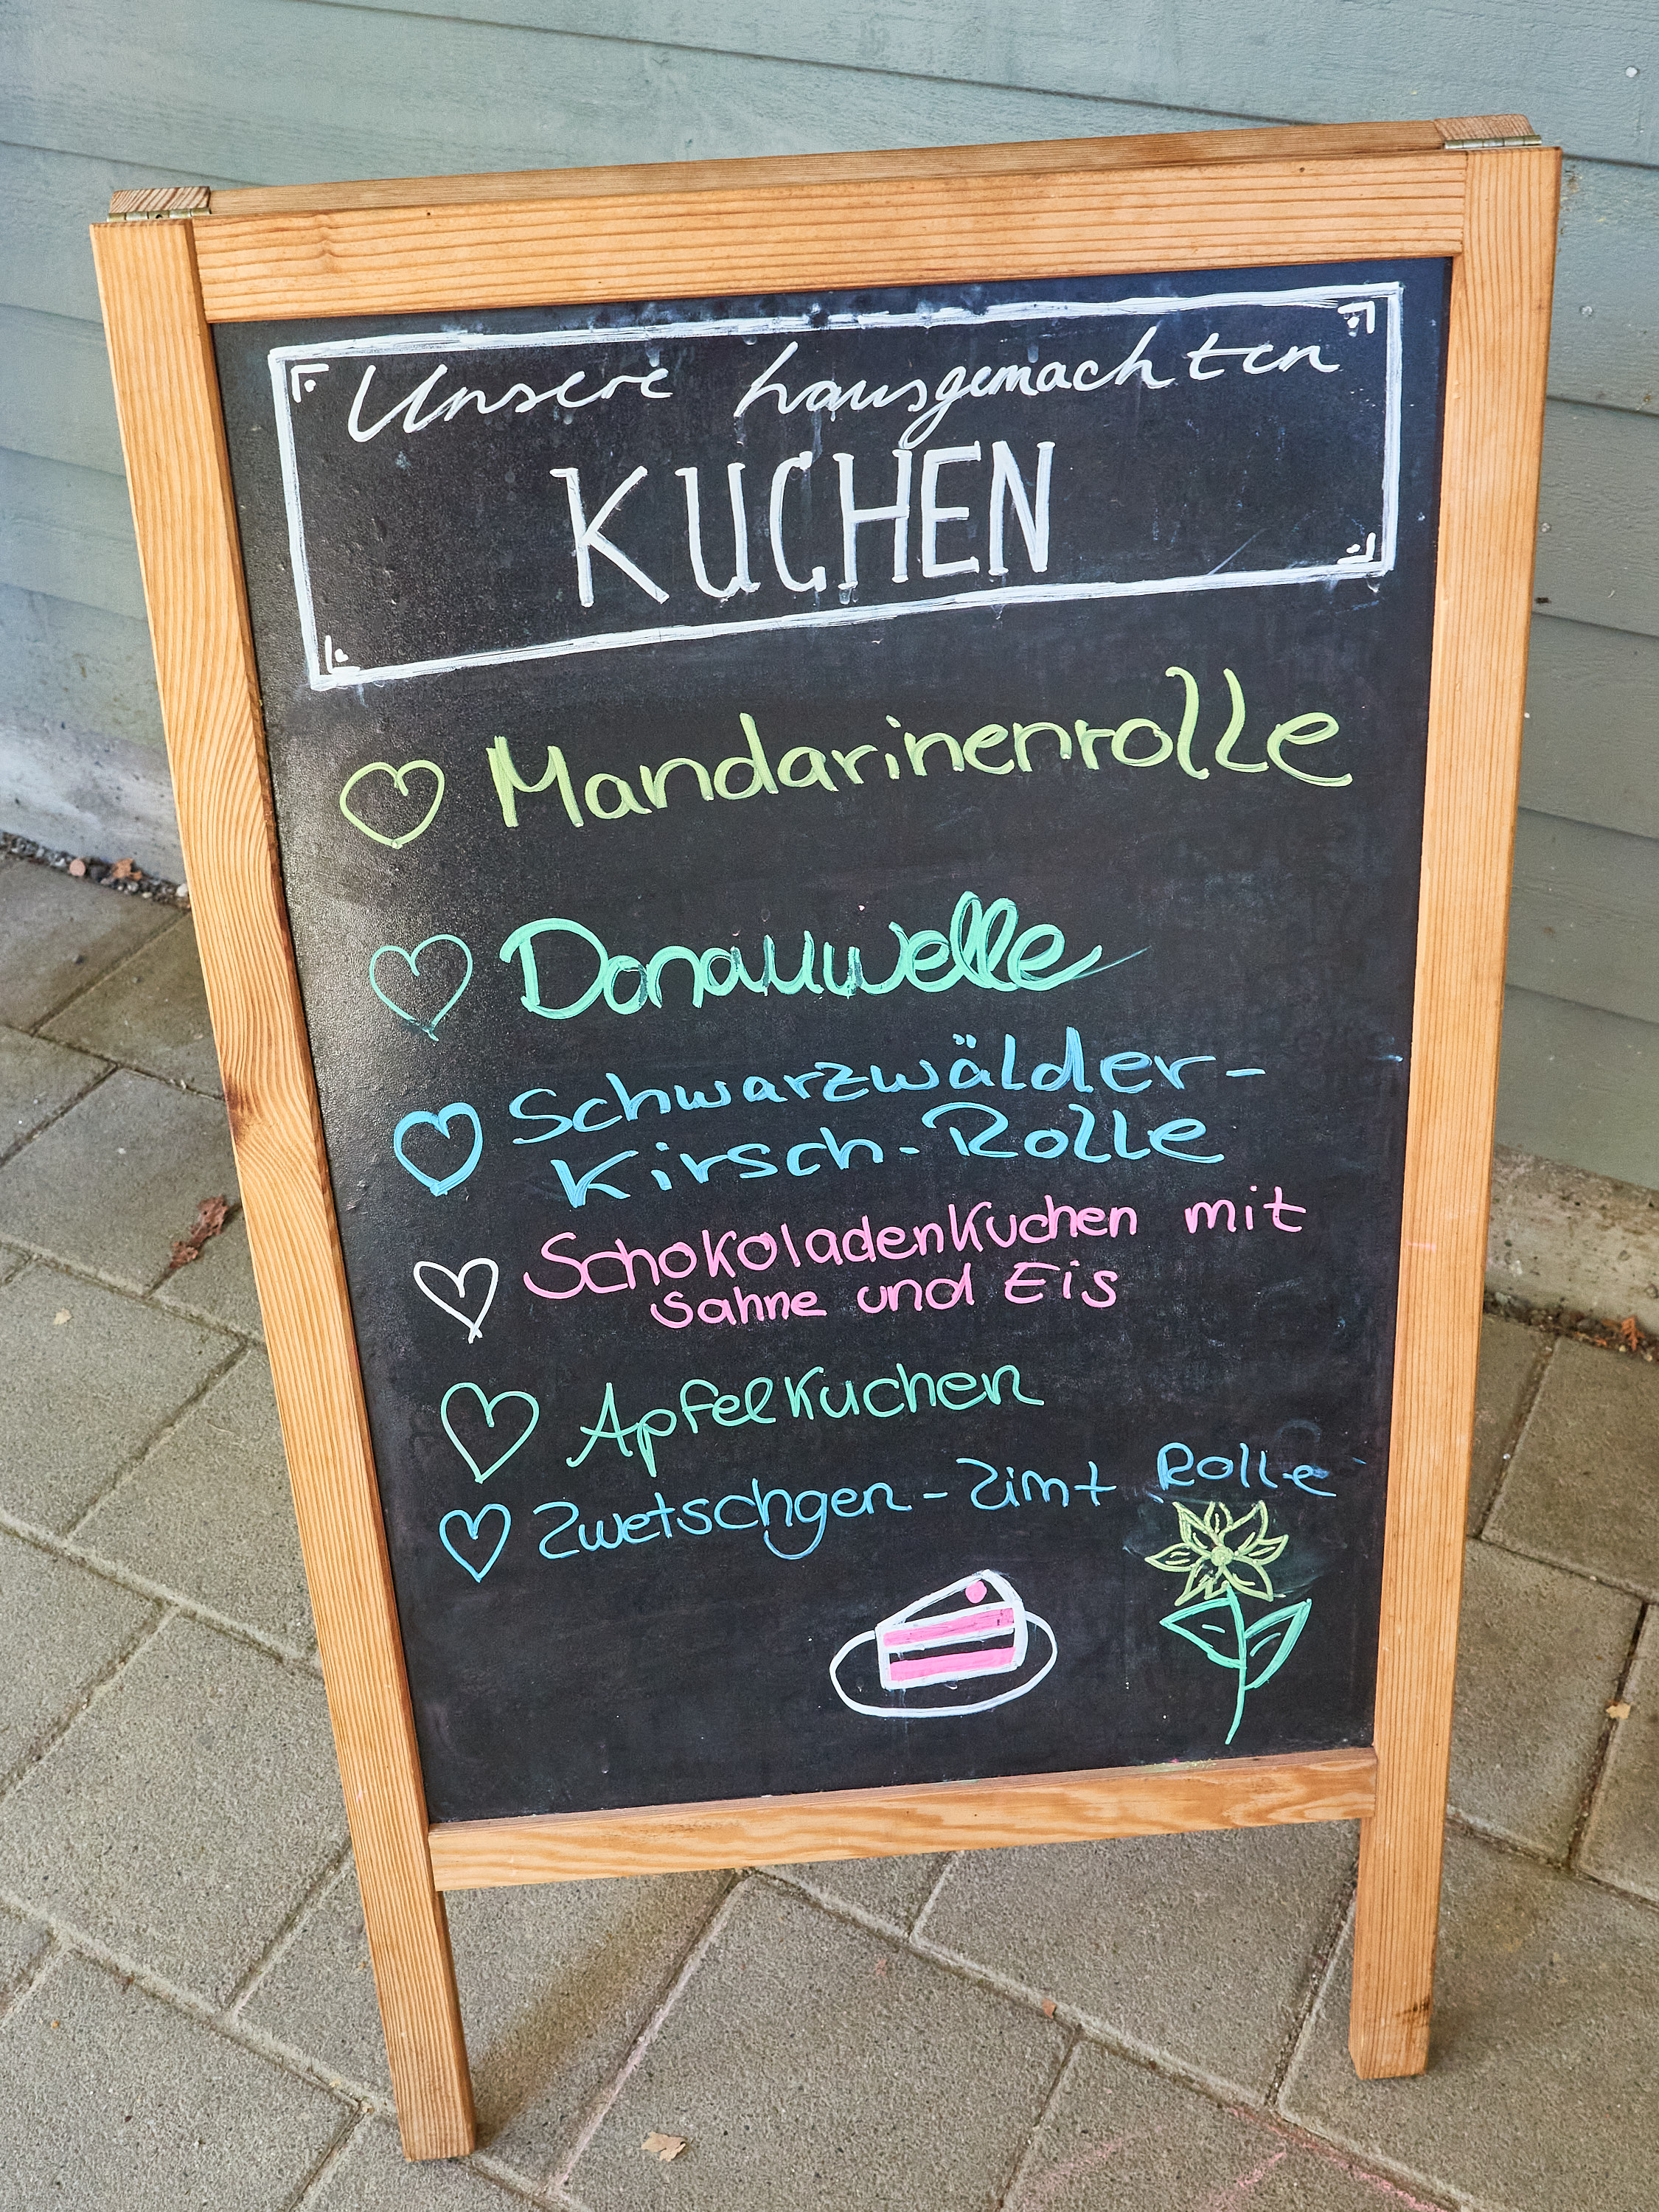 Unsere hausgemachten
KUCHEN
Mandarinenrolle
Donauwelle
Schwarzwälder-
Kirsch-Rolle
Schokoladenkuchen mit
Sahne und Eis
Apfelkuchen
Zwetschgen-Zimt Rolle